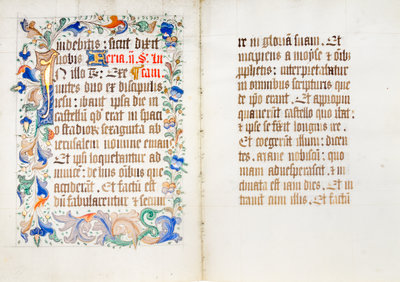 uidebitis: sicut dixit
uobis Feria .ii. S. lu
In illo t̄: Exe cam
iuntes duo ex discipulis
iesu: ibant ipsa die in
castellū qd̄ erat in spacō
stadioꝝ sexaginta ab
iherusalem nomine emaus
Et ipsi loquebantur ad
inuicē: de hiis ōībus que
acciderāt. Et factū est
dum fabularentur et secum
re in gloriā suam. Et
incipiens a moyse et ōībꝫ
ꝓphetis: interpretabatur
in omnibus scripturis que
de ipō erant. Et appropīq
quauerūt castello quo ibāt:
et ipse se fīxit longius ire
Et coegerūt illum: dicen
tes. mane nobiscū: quo
niam aduesperascit et in
clinata est iam dies. Et in
trauit cum illis. Et factū